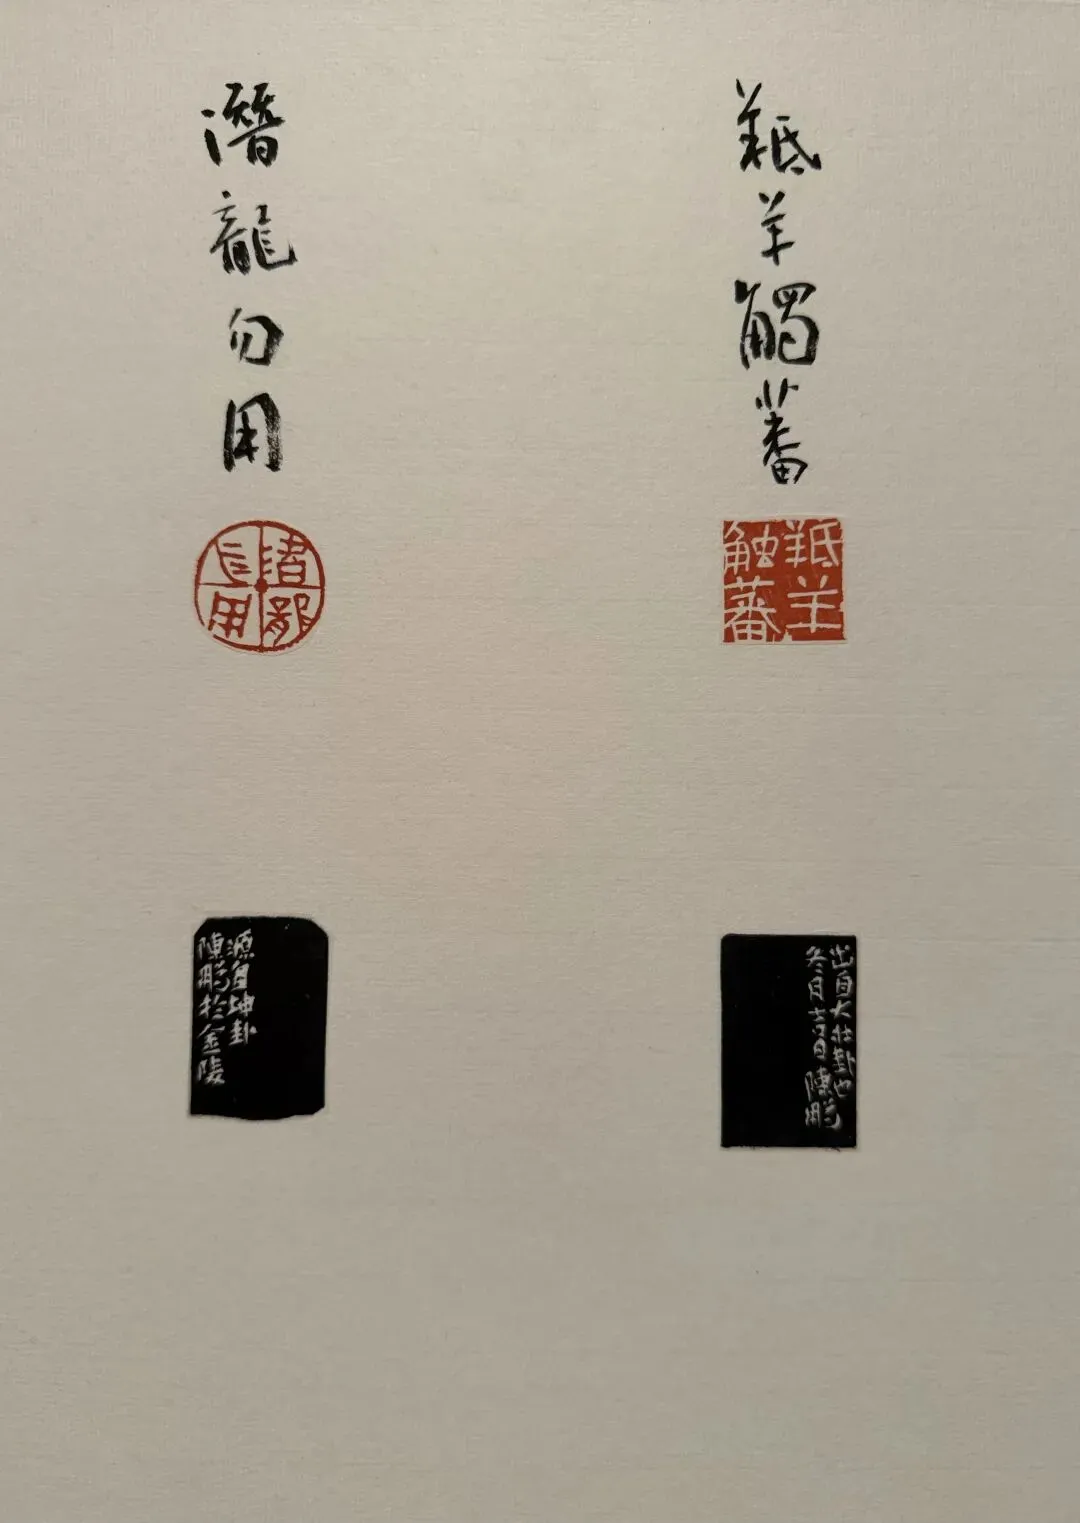 羝羊觸蕃
羝羊
触蕃
出自大壮卦也
冬月吉日陳鵬
潛龍勿用
潛龍
勿用
源自坤卦
陳鵬於金陵